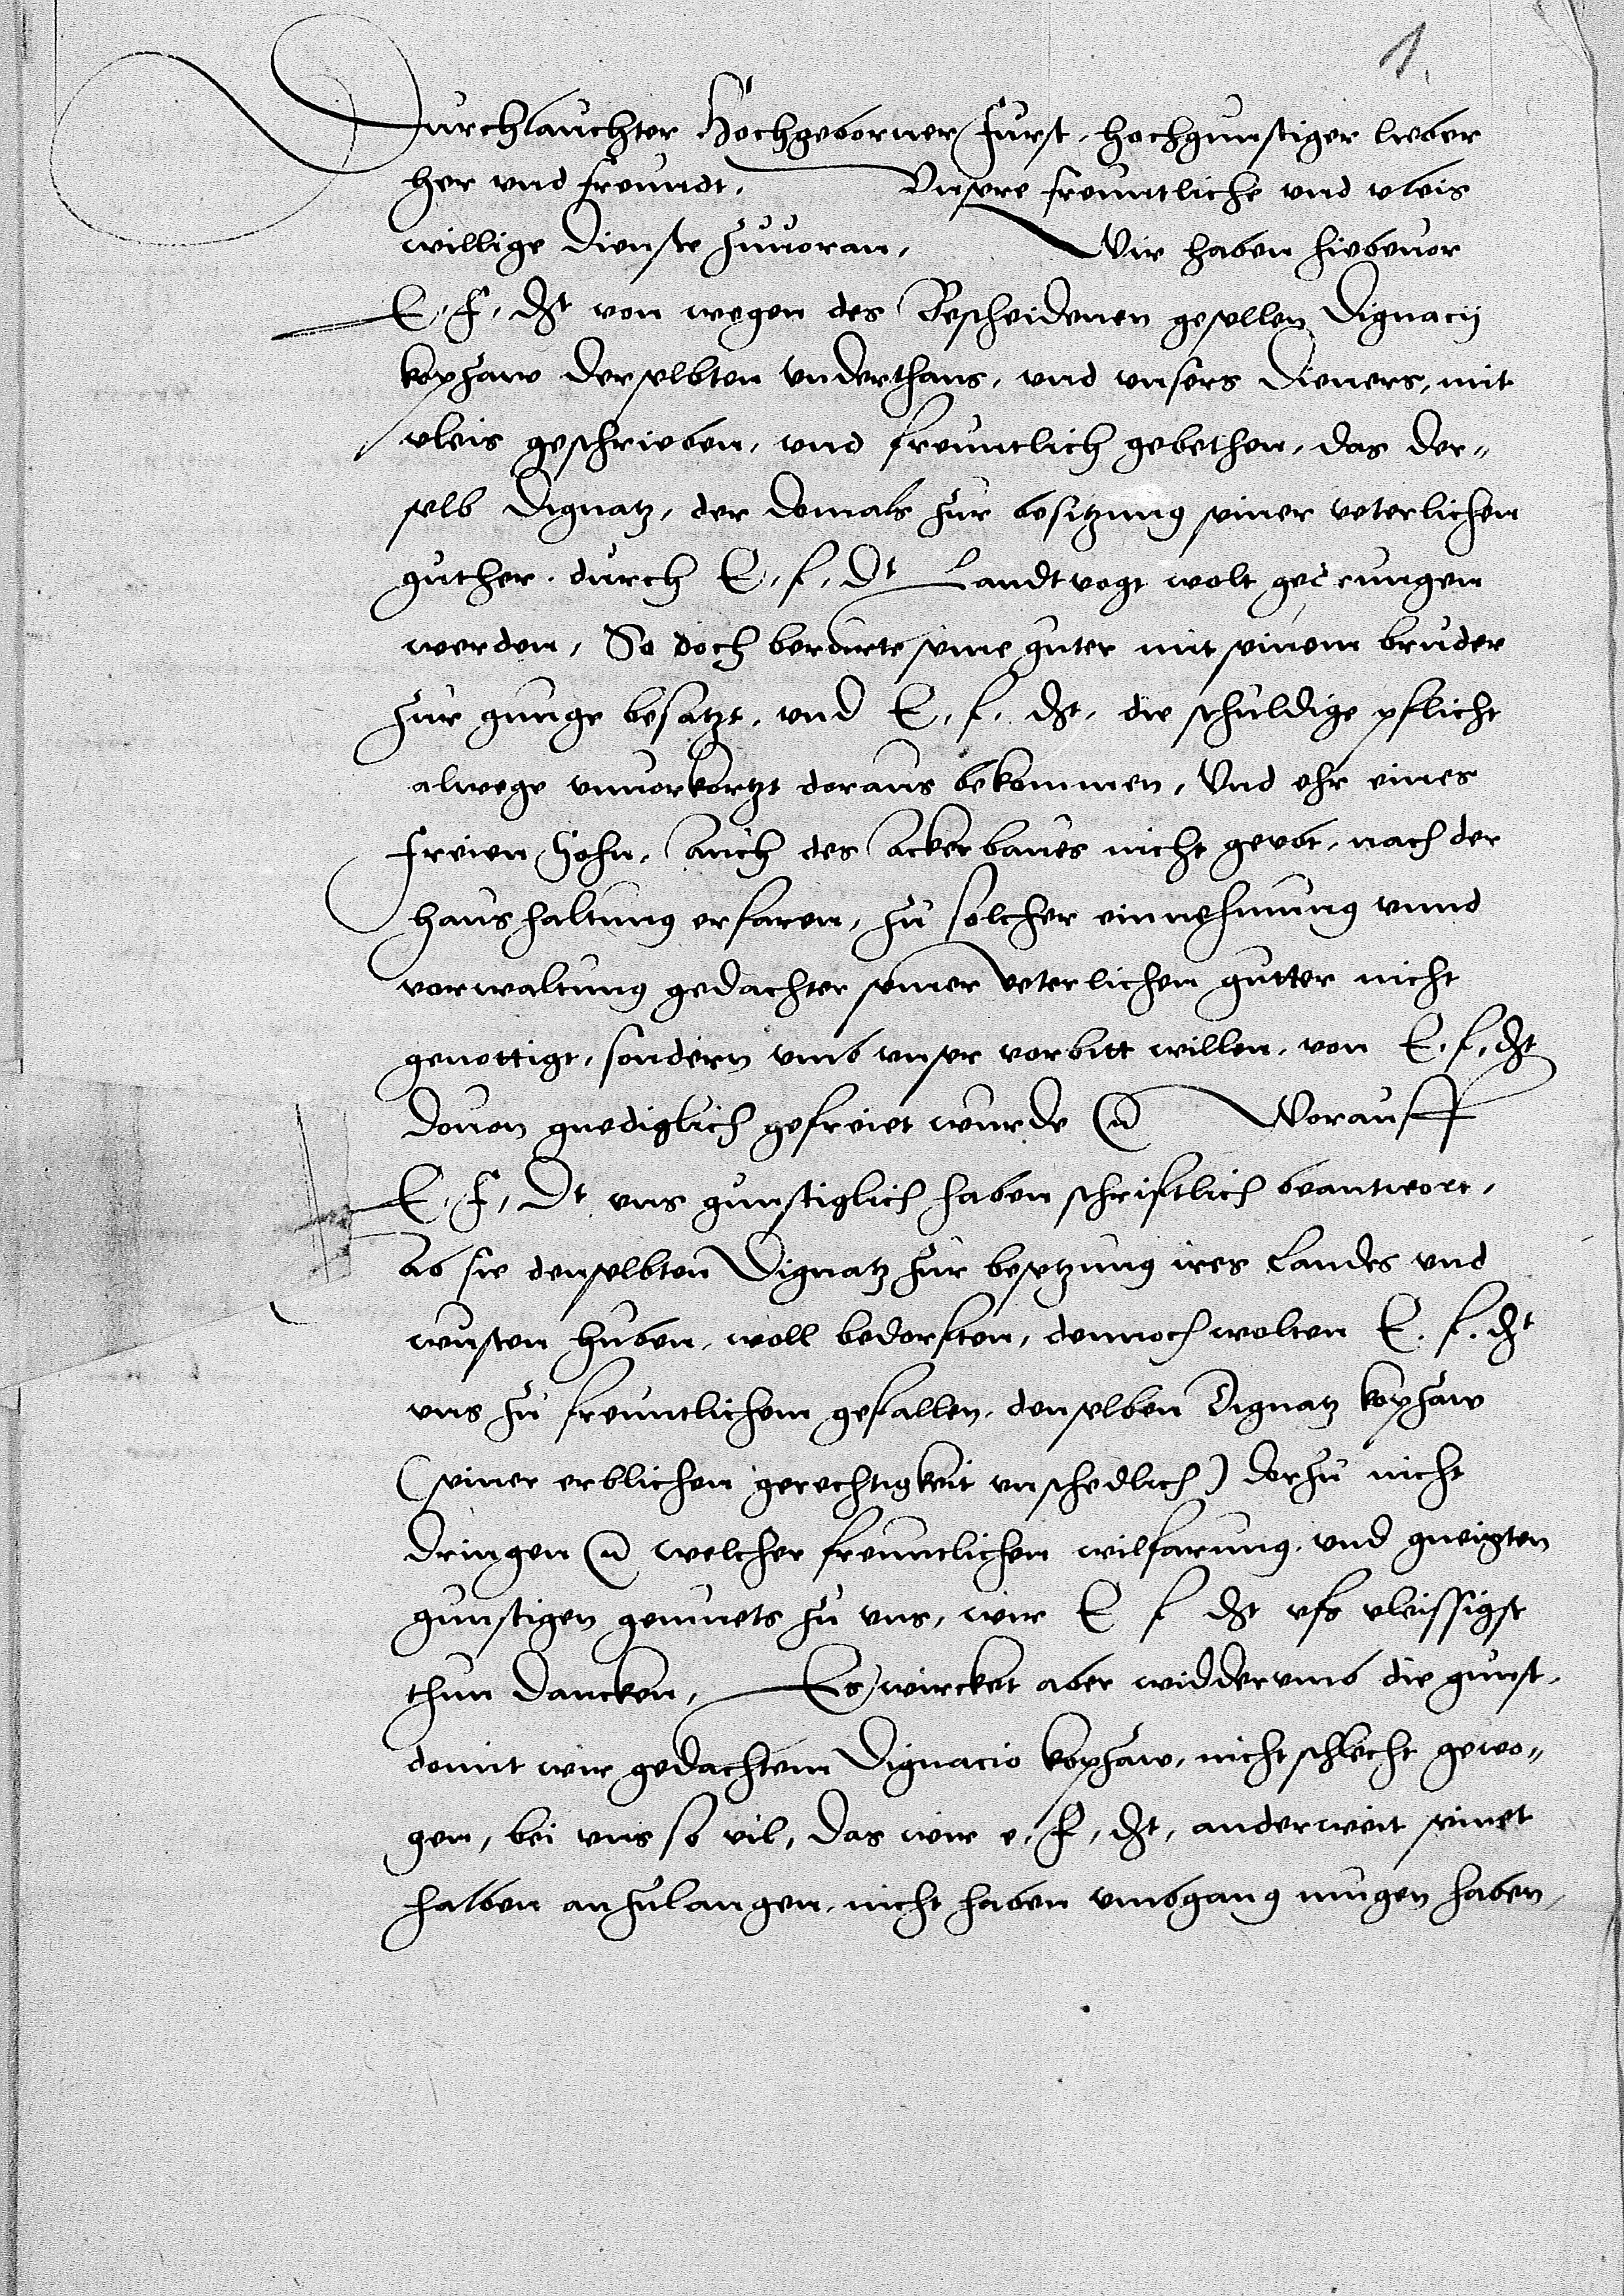 1.
Durchlauchter Hochgeborner Furst, hochgunstiger lieber
her vnd freundt, Vnsere freuntliche vnd vleis
willige dienste zuuoran, Wir haben hiebeuor
E. F. Dt von wegen des Bescheidenen gesellen Dignacij
kopzaw derselbten vnderthans, vnd vnsers dieners, mit
vleis geschrieben, vnd freuntlich gebethen, das der-
selb Dignatz, der domals zur besitzung seiner veterlichen
guther, durch E. f. Dt Landtvogt wolt gedrungen
werden, So doch berurte seine guter mit seinem bruder
zur gnuge besatzt, vnd E. f. Dt, die schuldige pflicht
alwege vnuorkortzt doraus bekommen, Vnd ehr eines
freien Sohn, auch des ackerbaues nicht geubt, noch der
haushaltung erfaren, zu solcher einnehmung vnnd
vorwaltung gedachter seiner veterlichen gutter nicht
genottigt, sondern vmb vnser vorbitt willen, von E. f. Dt
douon gnediglich gefreiet wurde Worauff
E. F. Dt vns gunstiglich haben schriftlich beantwort,
ab sie denselbten Dignatz zur besetzung ires Landes vnd
wusten huben, woll bedorften, dennoch wolten E. f. Dt
vns zu freuntlichem gefallen, denselben Dignatz kopzaw
(seiner erblichen gerechtigkeit vnschedlich) dorzu nicht
dringen welcher freuntlichen wilfarung, vnd gneigten
gunstigen gemuets zu vns, wir E f Dt vfs vleissigst
thun dancken, Es wircket aber widderumb die gunst,
domit wir gedachtem Dignacio kopzaw, nicht schlecht gewo-
gen, bei vns so vil, das wir e. F. Dt, anderweit seinet
halben anzulangen, nicht haben vmbgang mugen haben,